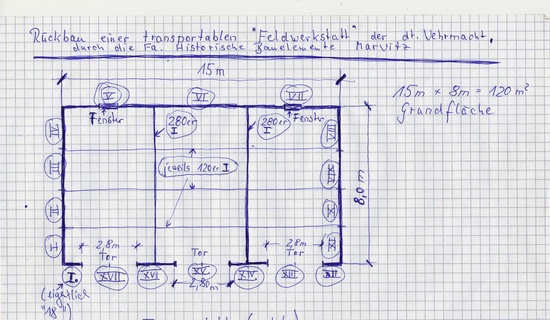 Rückbau einer transportablen "Feldwerkstatt" der dt. Wehrmacht,
durch die Fa. Historische Bauelemente Marwitz
15m
15m × 8m = 120 m²
Grundfläche
V
VI
VII
Fenster
280er I
280er I
Fenster
IV
III
II
I
jeweils 120er I
VIII
X
XI
8,0 m
2,8m
Tor
Tor
2,8m
Tor
I.
XVII
XVI
XV
XIV
XIII
XII
2,80m
(eigentlich
"18")